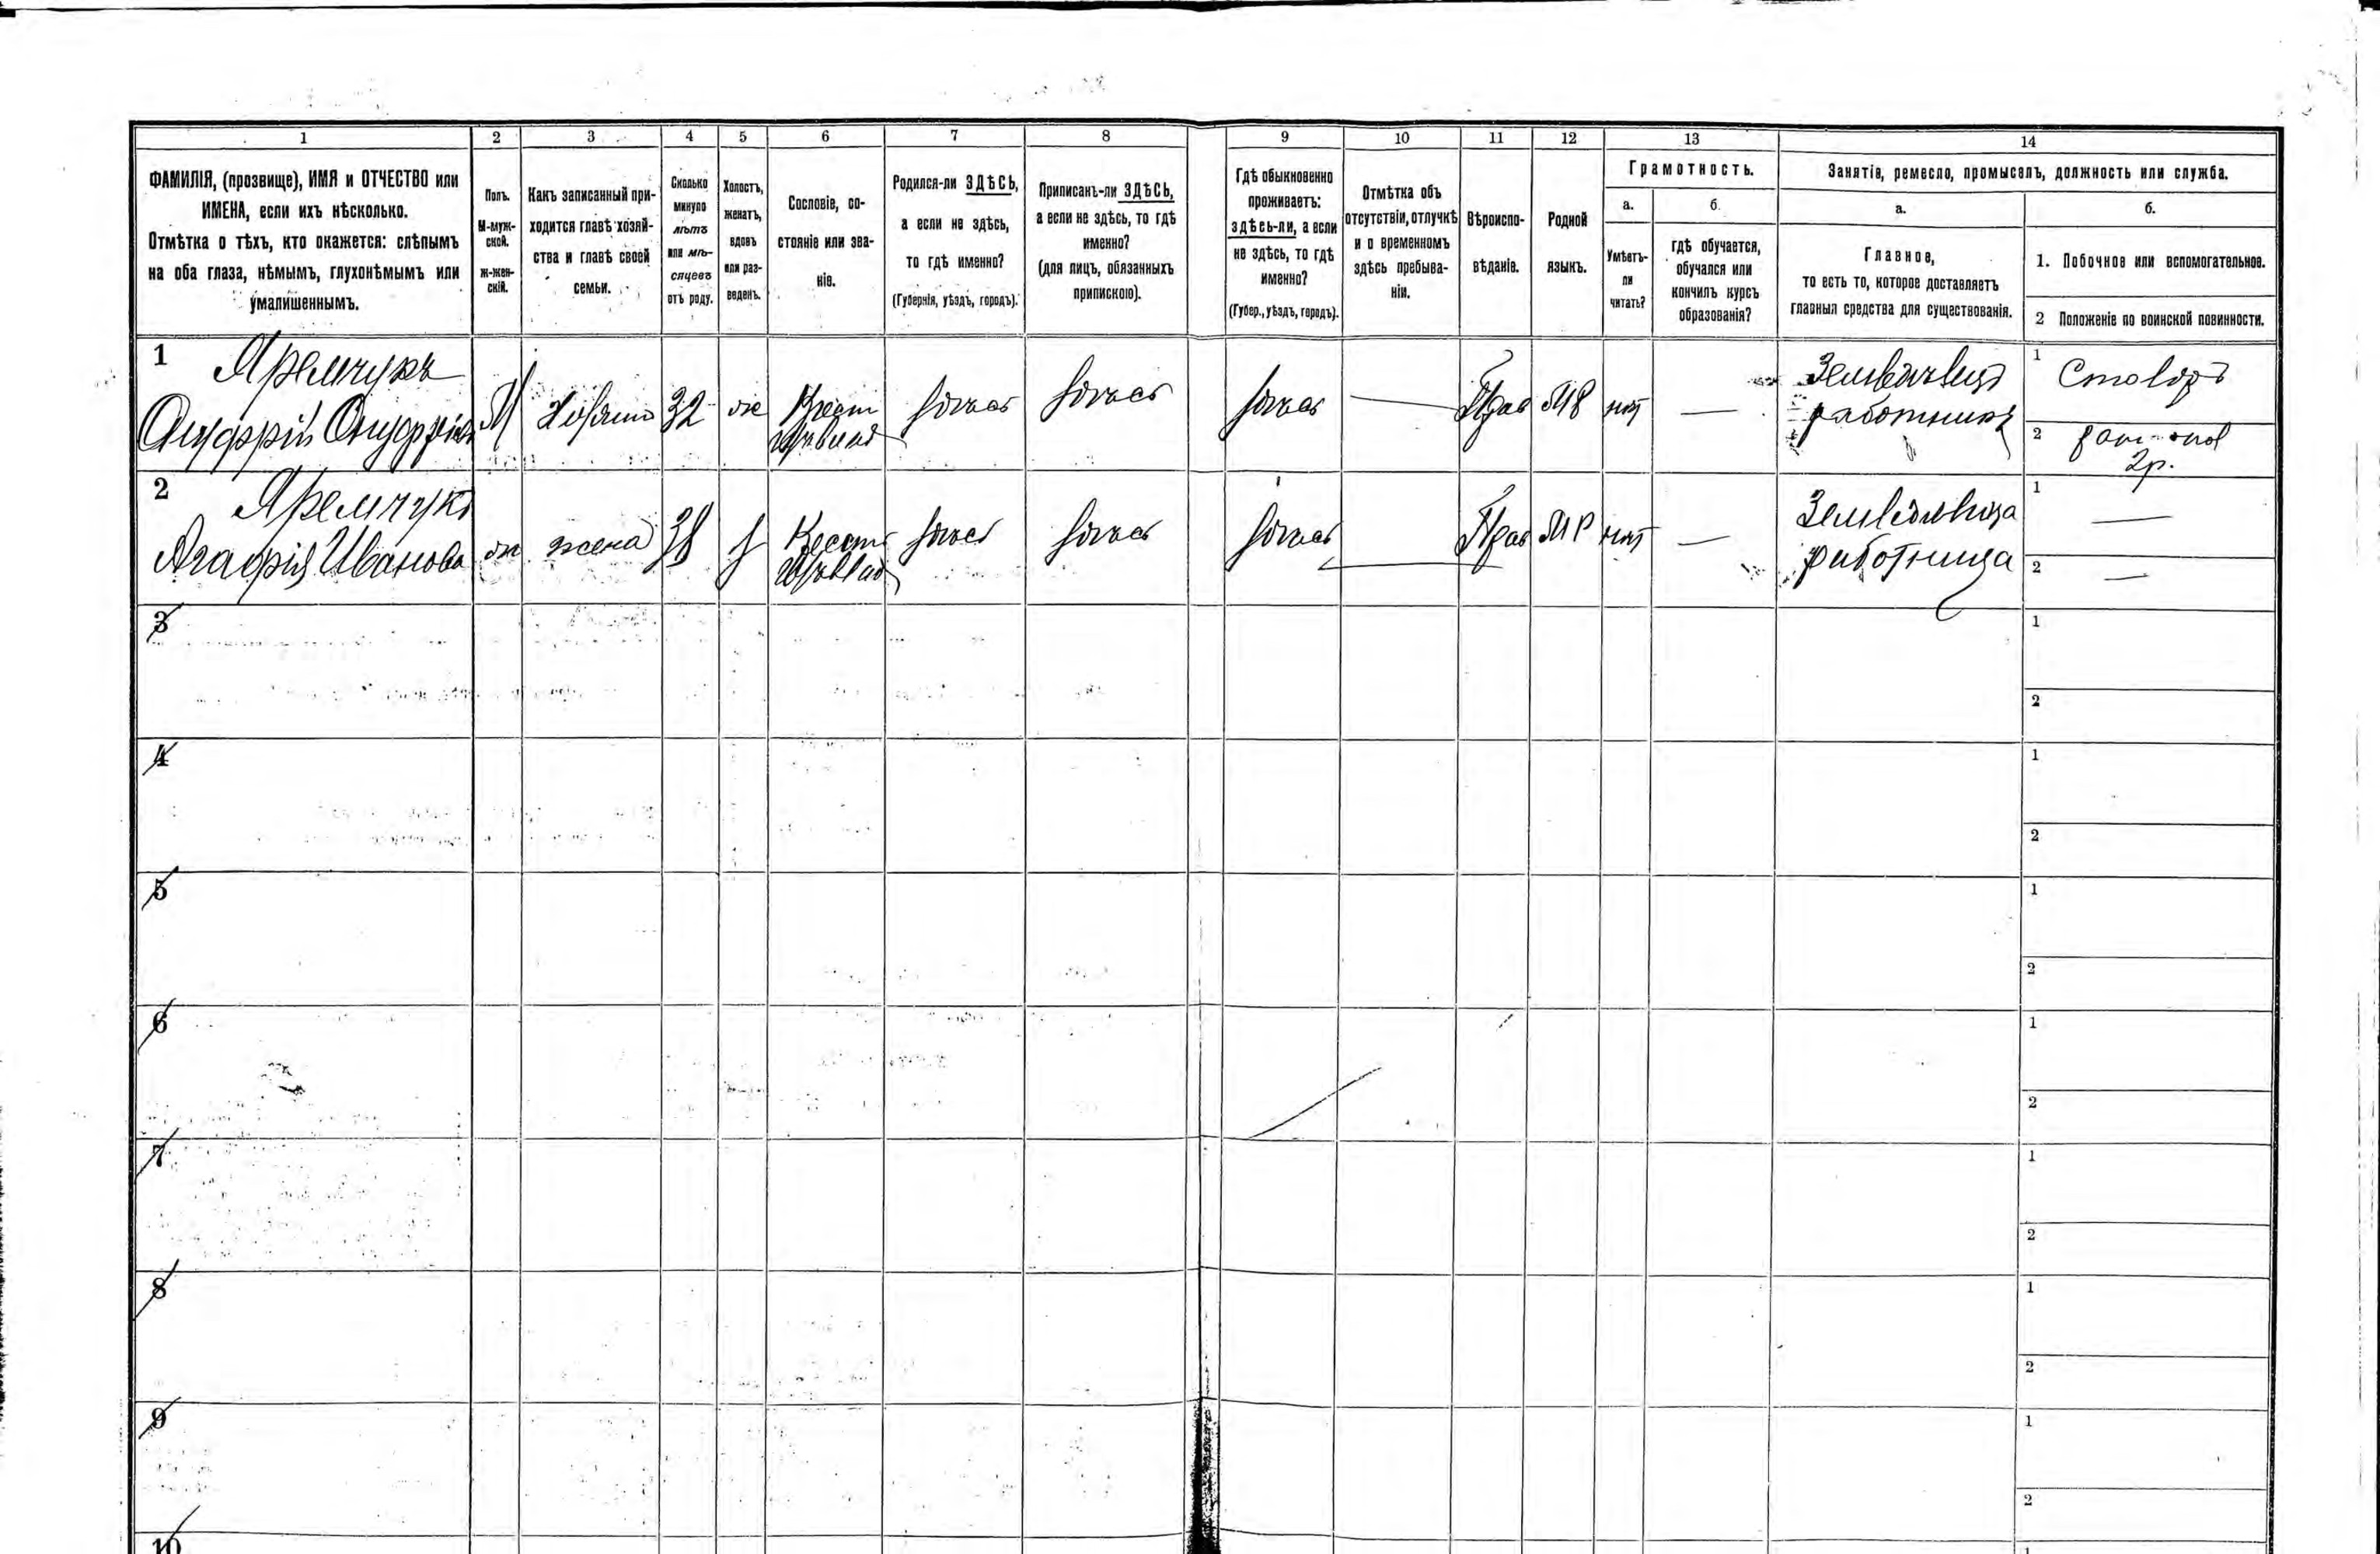 1 2 3 4 5 6 7 8 9 10 11 12 13 14
ФАМИЛІЯ, (прозвище), ИМЯ и ОТЧЕСТВО или
ИМЕНА, если ихъ нѣсколько.
Отмѣтка о тѣхъ, кто окажется: слѣпымъ
на оба глаза, нѣмымъ, глухонѣмымъ или
умалишеннымъ.
Полъ.
М-муж-
ской.
ж-жен-
скій.
Какъ записанный при-
ходится главѣ хозяй-
ства и главѣ своей
семьи.
Сколько
минуло
лѣтъ
или мѣ-
сяцевъ
отъ роду.
Холостъ,
женатъ,
вдовъ
или раз-
веденъ.
Сословіе, со-
стояніе или зва-
ніе.
Родился-ли ЗДѢСЬ,
а если не здѣсь,
то гдѣ именно?
(Губернія, уѣздъ, городъ).
Приписанъ-ли ЗДѢСЬ,
а если не здѣсь, то гдѣ
именно?
(для лицъ, обязанныхъ
припискою).
Гдѣ обыкновенно
проживаетъ:
здѣсь-ли, а если
не здѣсь, то гдѣ
именно?
(Губер., уѣздъ, городъ).
Отмѣтка объ
отсутствіи, отлучкѣ
и о временномъ
здѣсь пребыва-
ніи.
Вѣроиспо-
вѣданіе.
Родной
языкъ.
Грамотность.
а.
Умѣетъ-
ли
читать?
б.
гдѣ обучается,
обучался или
кончилъ курсъ
образованія?
Занятіе, ремесло, промыселъ, должность или служба.
а.
Главное,
то есть то, которое доставляетъ
главныя средства для существованія.
б.
1. Побочное или вспомогательное.
2 Положеніе по воинской повинности.
1 Яремчукъ
М 32 Крест здѣсь здѣсь здѣсь — Прав нѣт —
работникъ
1
2
2р.
2 Яремчукъ
Агафія Иванова ж жена 38 Крест здѣсь здѣсь здѣсь — Прав нѣт —
работница
1 —
2 —
3
1
2
4
1
2
5
1
2
6
1
2
7
1
2
8
1
2
9
1
2
10
1